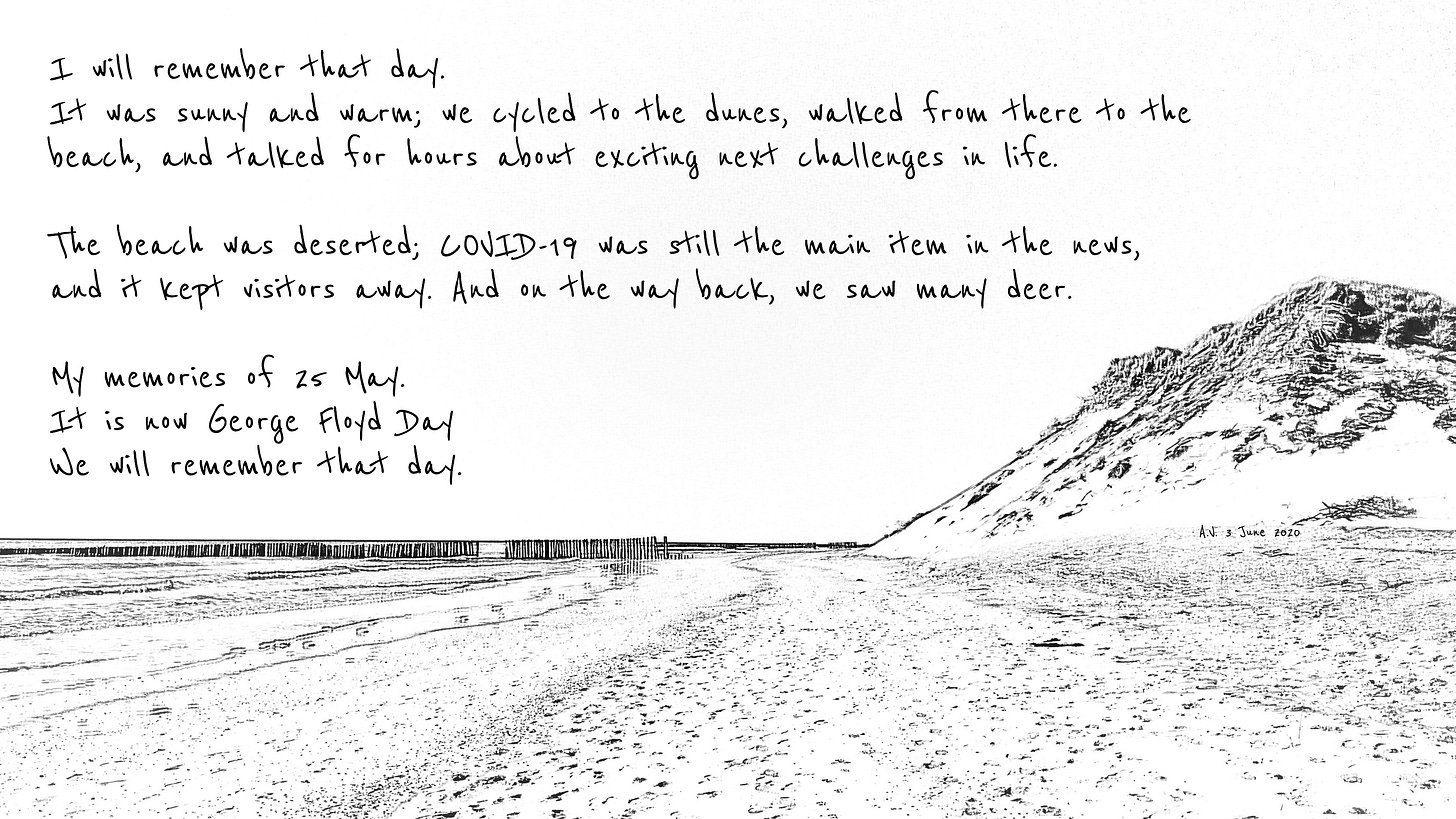 I will remember that day.
It was sunny and warm; we cycled to the dunes, walked from there to the
beach, and talked for hours about exciting next challenges in life.
The beach was deserted; COVID-19 was still the main item in the news,
and it kept visitors away. And on the way back, we saw many deer.
My memories of 25 May.
It is now George Floyd Day
We will remember that day.
A.V. 3 June 2020